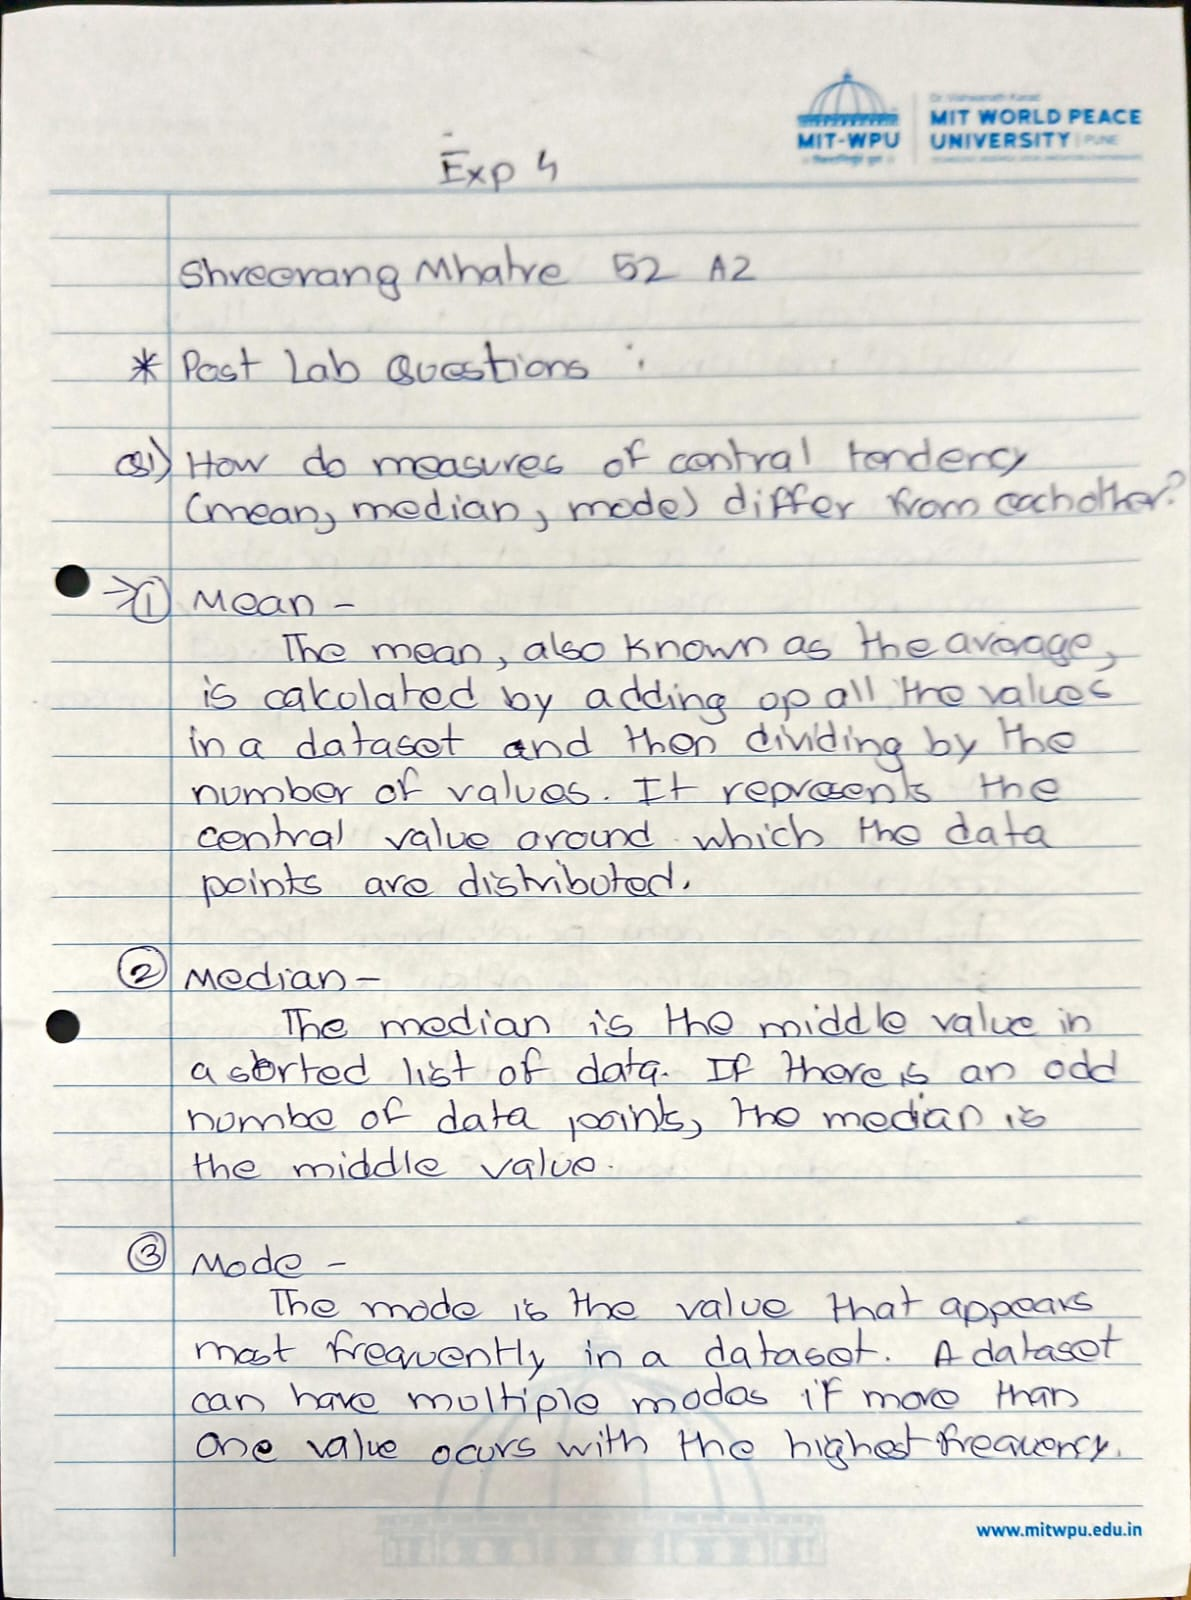 Dr. Vishwanath Karad
MIT WORLD PEACE
UNIVERSITY | PUNE
MIT-WPU
Exp 4
Shreerang Mhatre 52 A2
* Post Lab Questions :
Q1) How do measures of central tendency
(mean, median, mode) differ from eachother?
→ ① Mean -
The mean, also known as the average,
is calculated by adding up all the values
in a dataset and then dividing by the
number of values. It represents the
central value around which the data
points are distributed.
② Median -
The median is the middle value in
a sorted list of data. If there is an odd
numbe of data points, the median is
the middle value.
③ Mode -
The mode is the value that appears
most frequently in a dataset. A dataset
can have multiple modes if more than
one value ocurs with the highest frequency.
www.mitwpu.edu.in